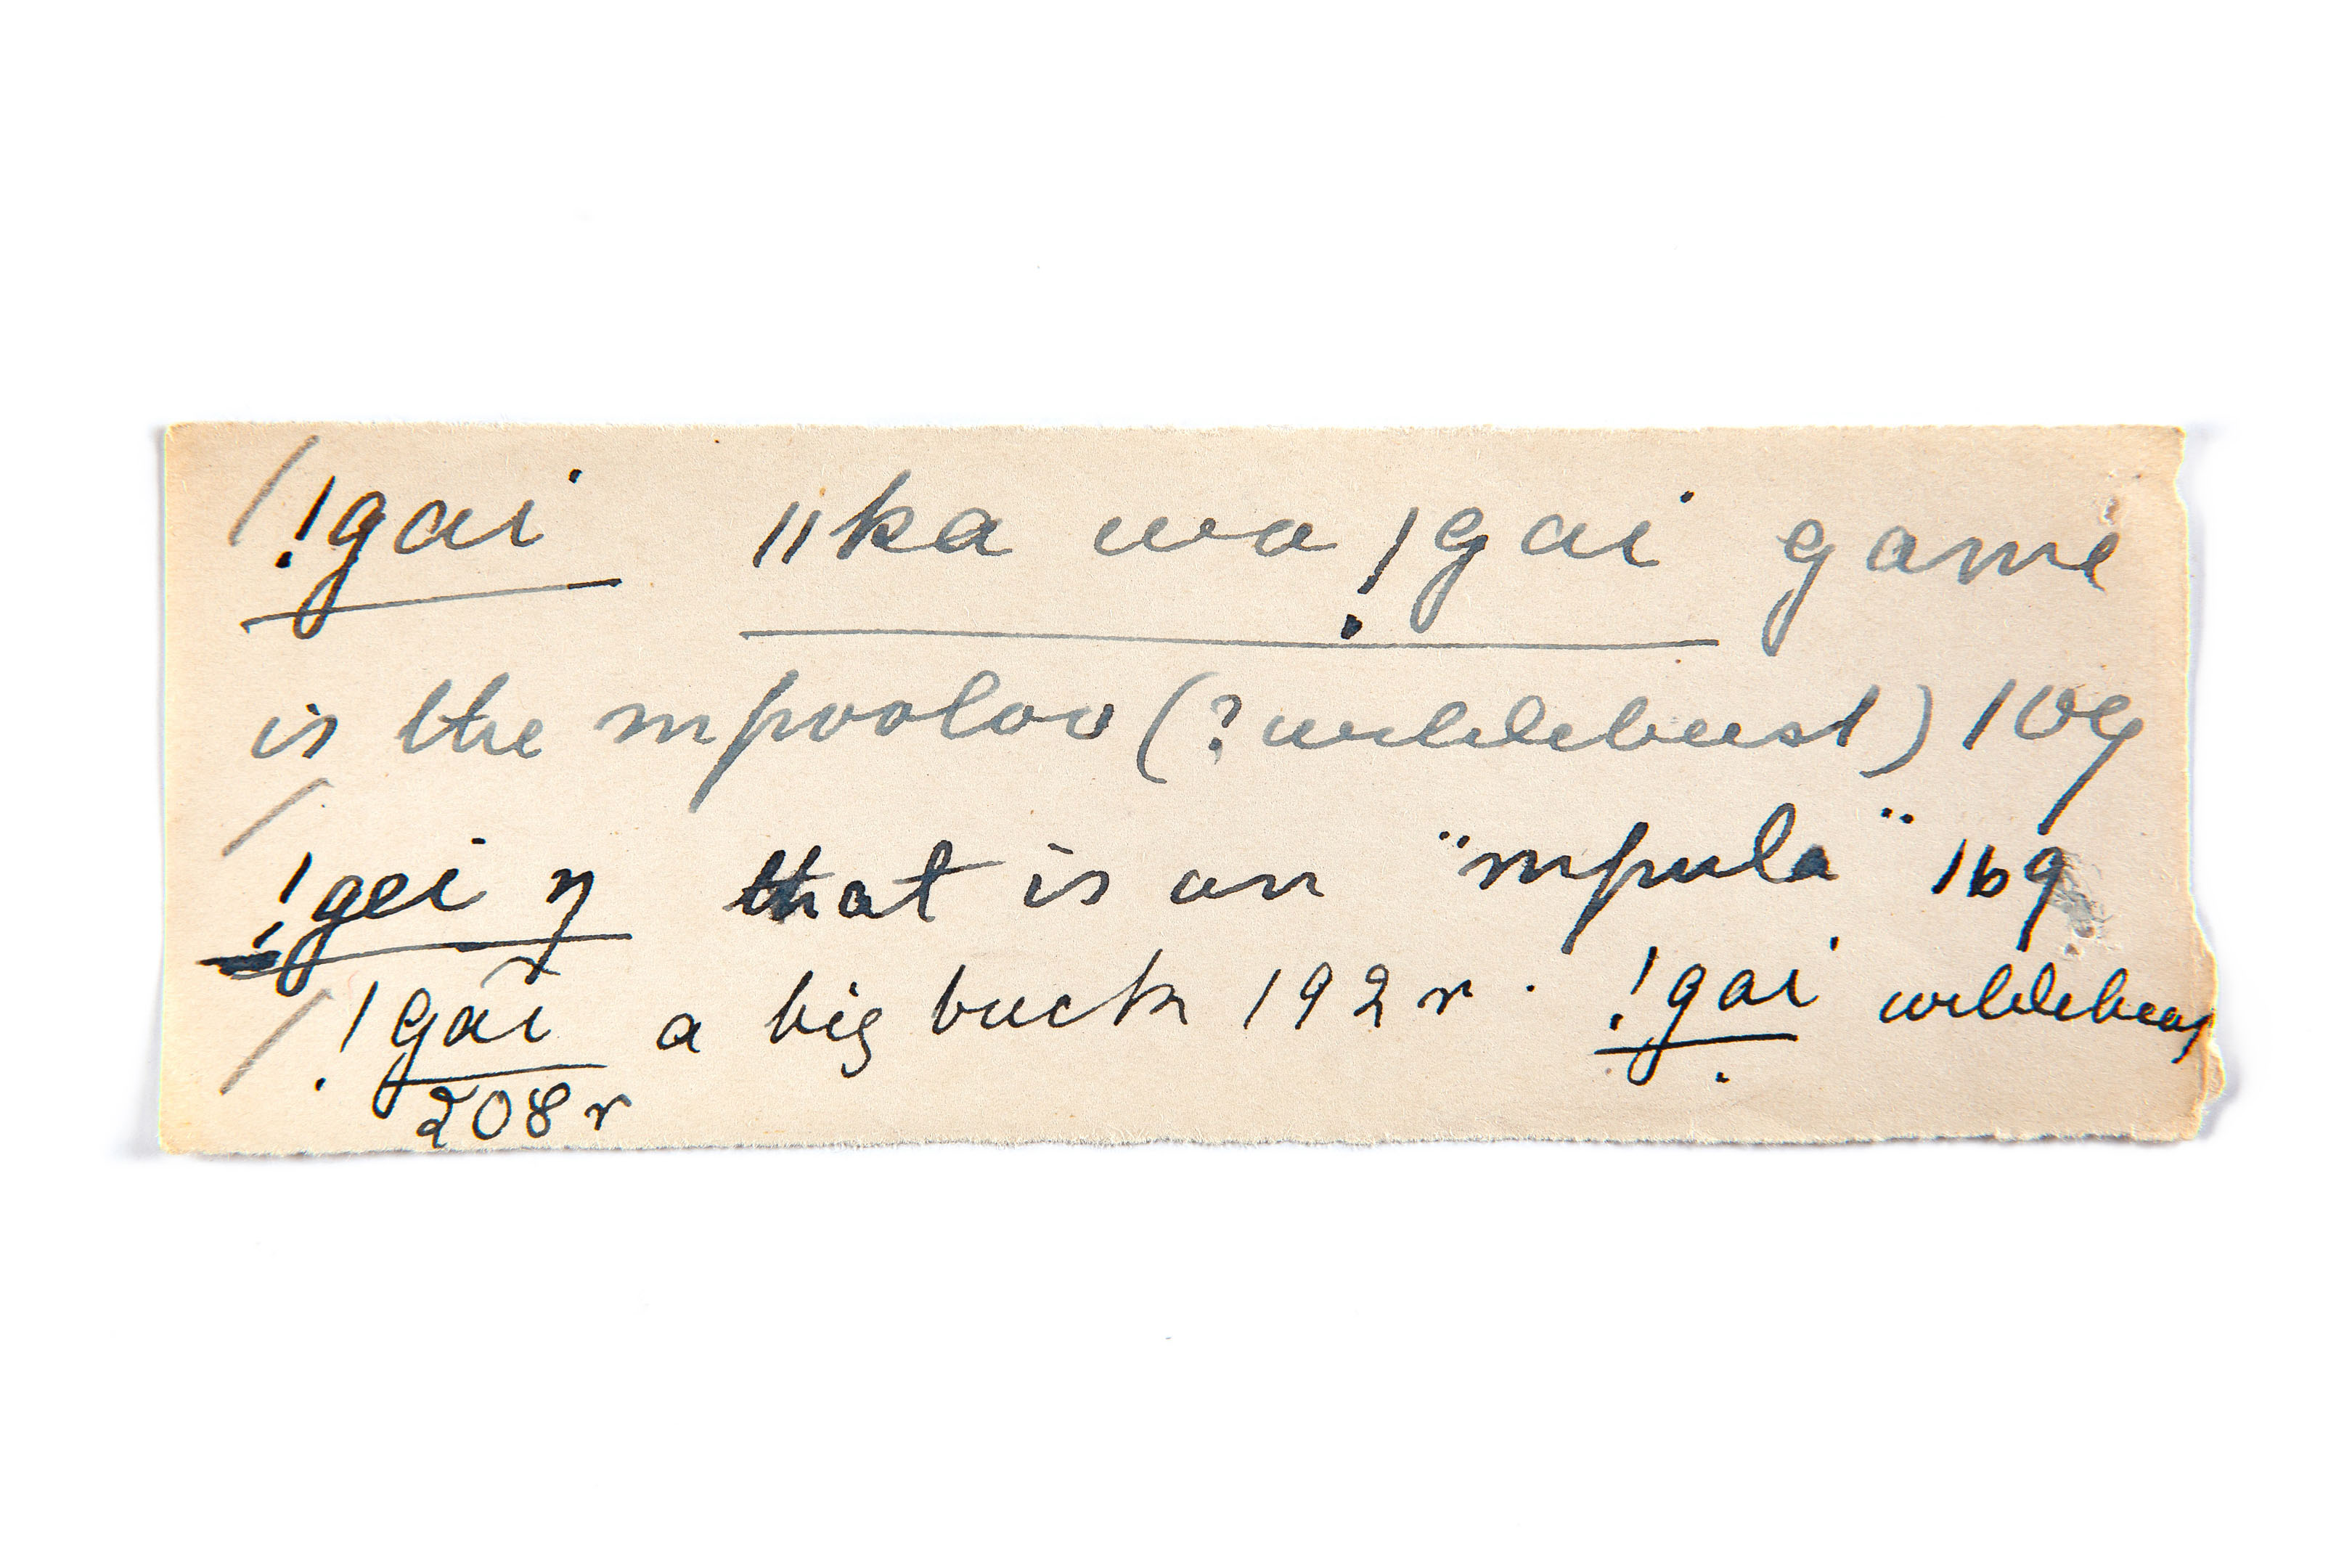 !gai ǁka wa !gai game
is the mpooloo (? wildebeest) 109
!gei η that is an "mpula" 169
!gai a big buck 192 r . !gai wildebeest
208 r